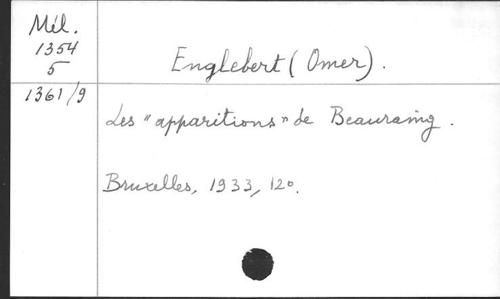 Mél.
1354
5
Englebert (Omer).
1361/9
Les "apparitions" de Beauraing.
Bruxelles, 1933, 12º.